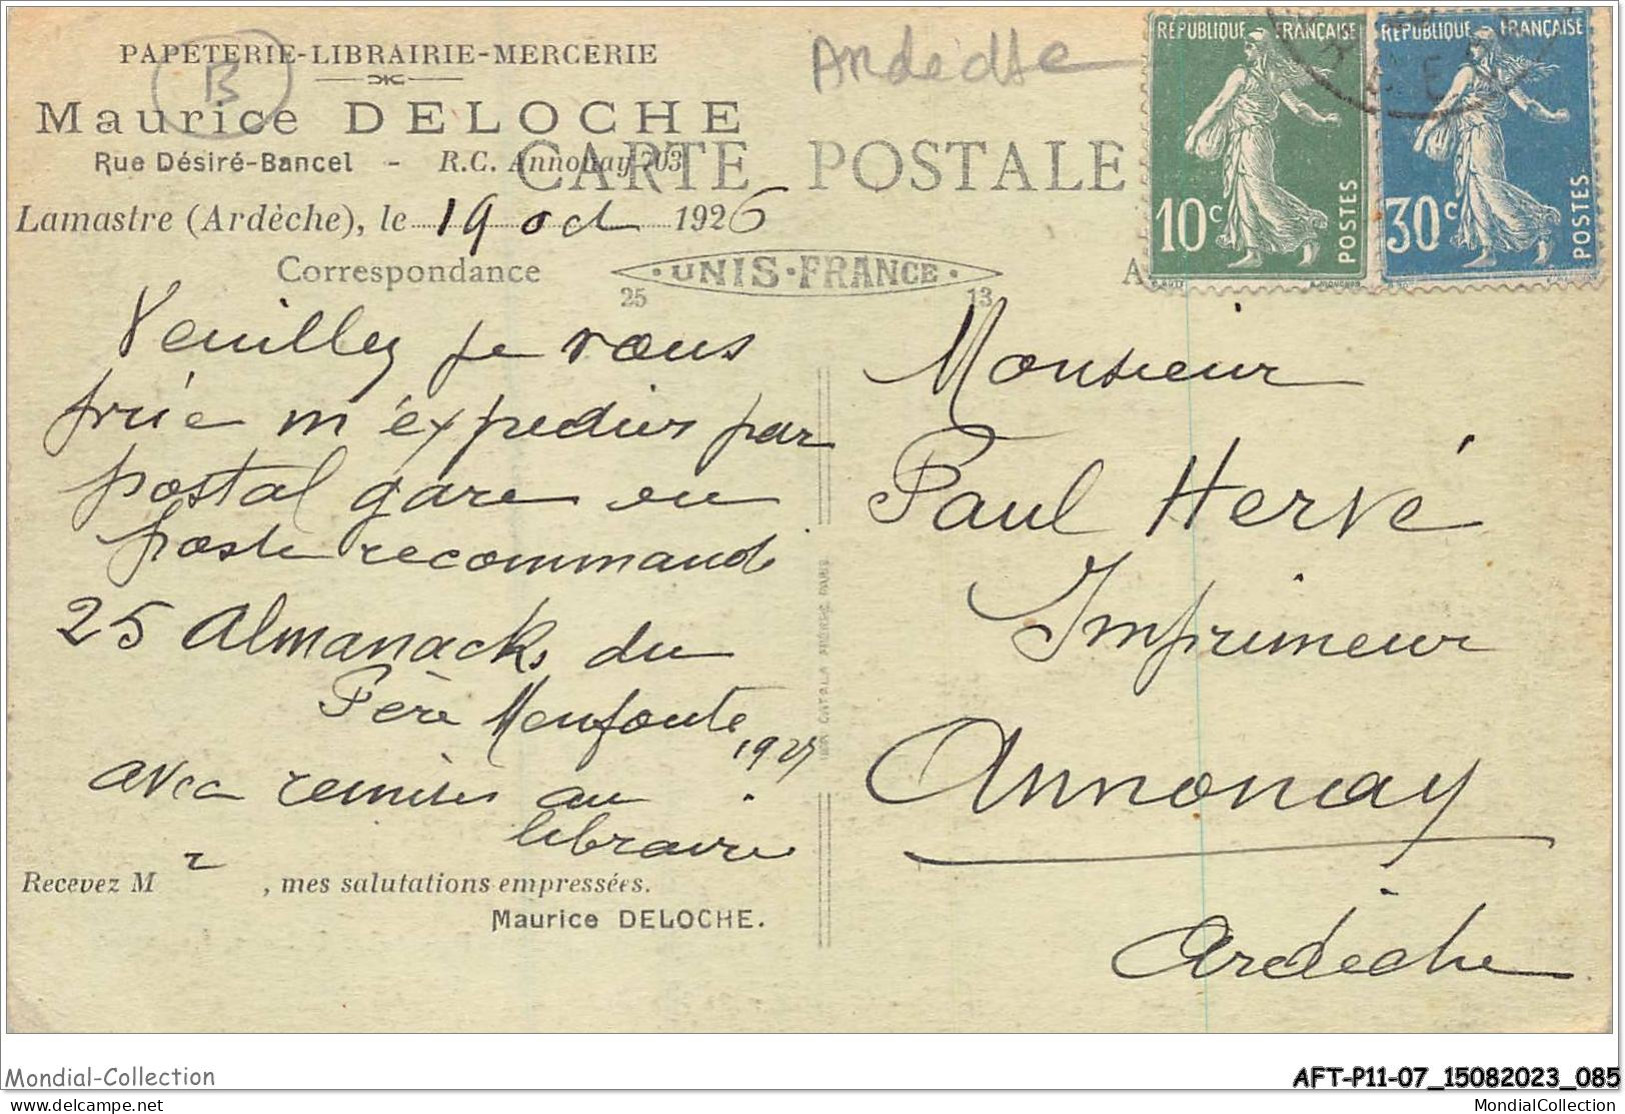 PAPETERIE-LIBRAIRIE-MERCERIE
B
Maurice DELOCHE
Rue Désiré-Bancel - R.C. Annonay 703
Lamastre (Ardèche), le 19 oct 1926
Ardèche
CARTE POSTALE
RÉPUBLIQUE FRANÇAISE
10c
POSTES
RÉPUBLIQUE FRANÇAISE
30c
POSTES
Correspondance
UNIS-FRANCE
25 13
A
Veuillez je vous
prie m'expédier par
postal gare ou
poste recommandé
25 Almanachs du
Père Menfoute
1927
avec remises au
libraire
Recevez M r , mes salutations empressées.
Maurice DELOCHE.
Monsieur
Paul Hervé
Imprimeur
Annonay
Ardèche
Mondial-Collection
AFT-P11-07_15082023_085
delcampe.net
MondialCollection